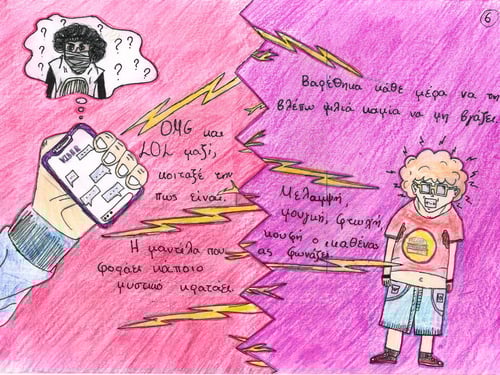 6
OMG και
LOL μαζί,
κοιταξέ την
πως είναι.
Η μαντίλα που
φοράει κάποιο
μυστικό κρατάει.
Βαρέθηκα κάθε μέρα να τη
βλέπω μιλιά καμία να μη βγάζει.
Μελαμψή,
μουγκή, φτωχή,
κουφή ο καθένας
ας φωνάζει.